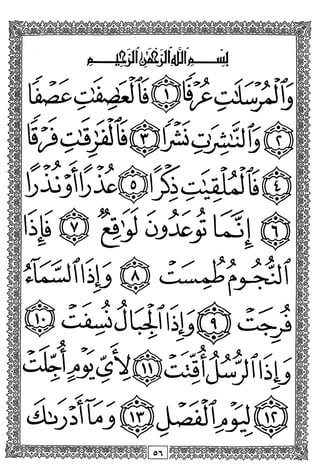 بِسْمِ اللَّهِ الرَّحْمَٰنِ الرَّحِيمِ
وَالْمُرْسَلَاتِ عُرْفًا ١ فَالْعَاصِفَاتِ عَصْفًا
٢ وَالنَّاشِرَاتِ نَشْرًا ٣ فَالْفَارِقَاتِ فَرْقًا
٤ فَالْمُلْقِيَاتِ ذِكْرًا ٥ عُذْرًا أَوْ نُذْرًا
٦ إِنَّمَا تُوعَدُونَ لَوَاقِعٌ ٧ فَإِذَا
النُّجُومُ طُمِسَتْ ٨ وَإِذَا السَّمَاءُ
فُرِجَتْ ٩ وَإِذَا الْجِبَالُ نُسِفَتْ ١٠
وَإِذَا الرُّسُلُ أُقِّتَتْ ١١ لِأَيِّ يَوْمٍ أُجِّلَتْ
١٢ لِيَوْمِ الْفَصْلِ ١٣ وَمَا أَدْرَاكَ
٥٦